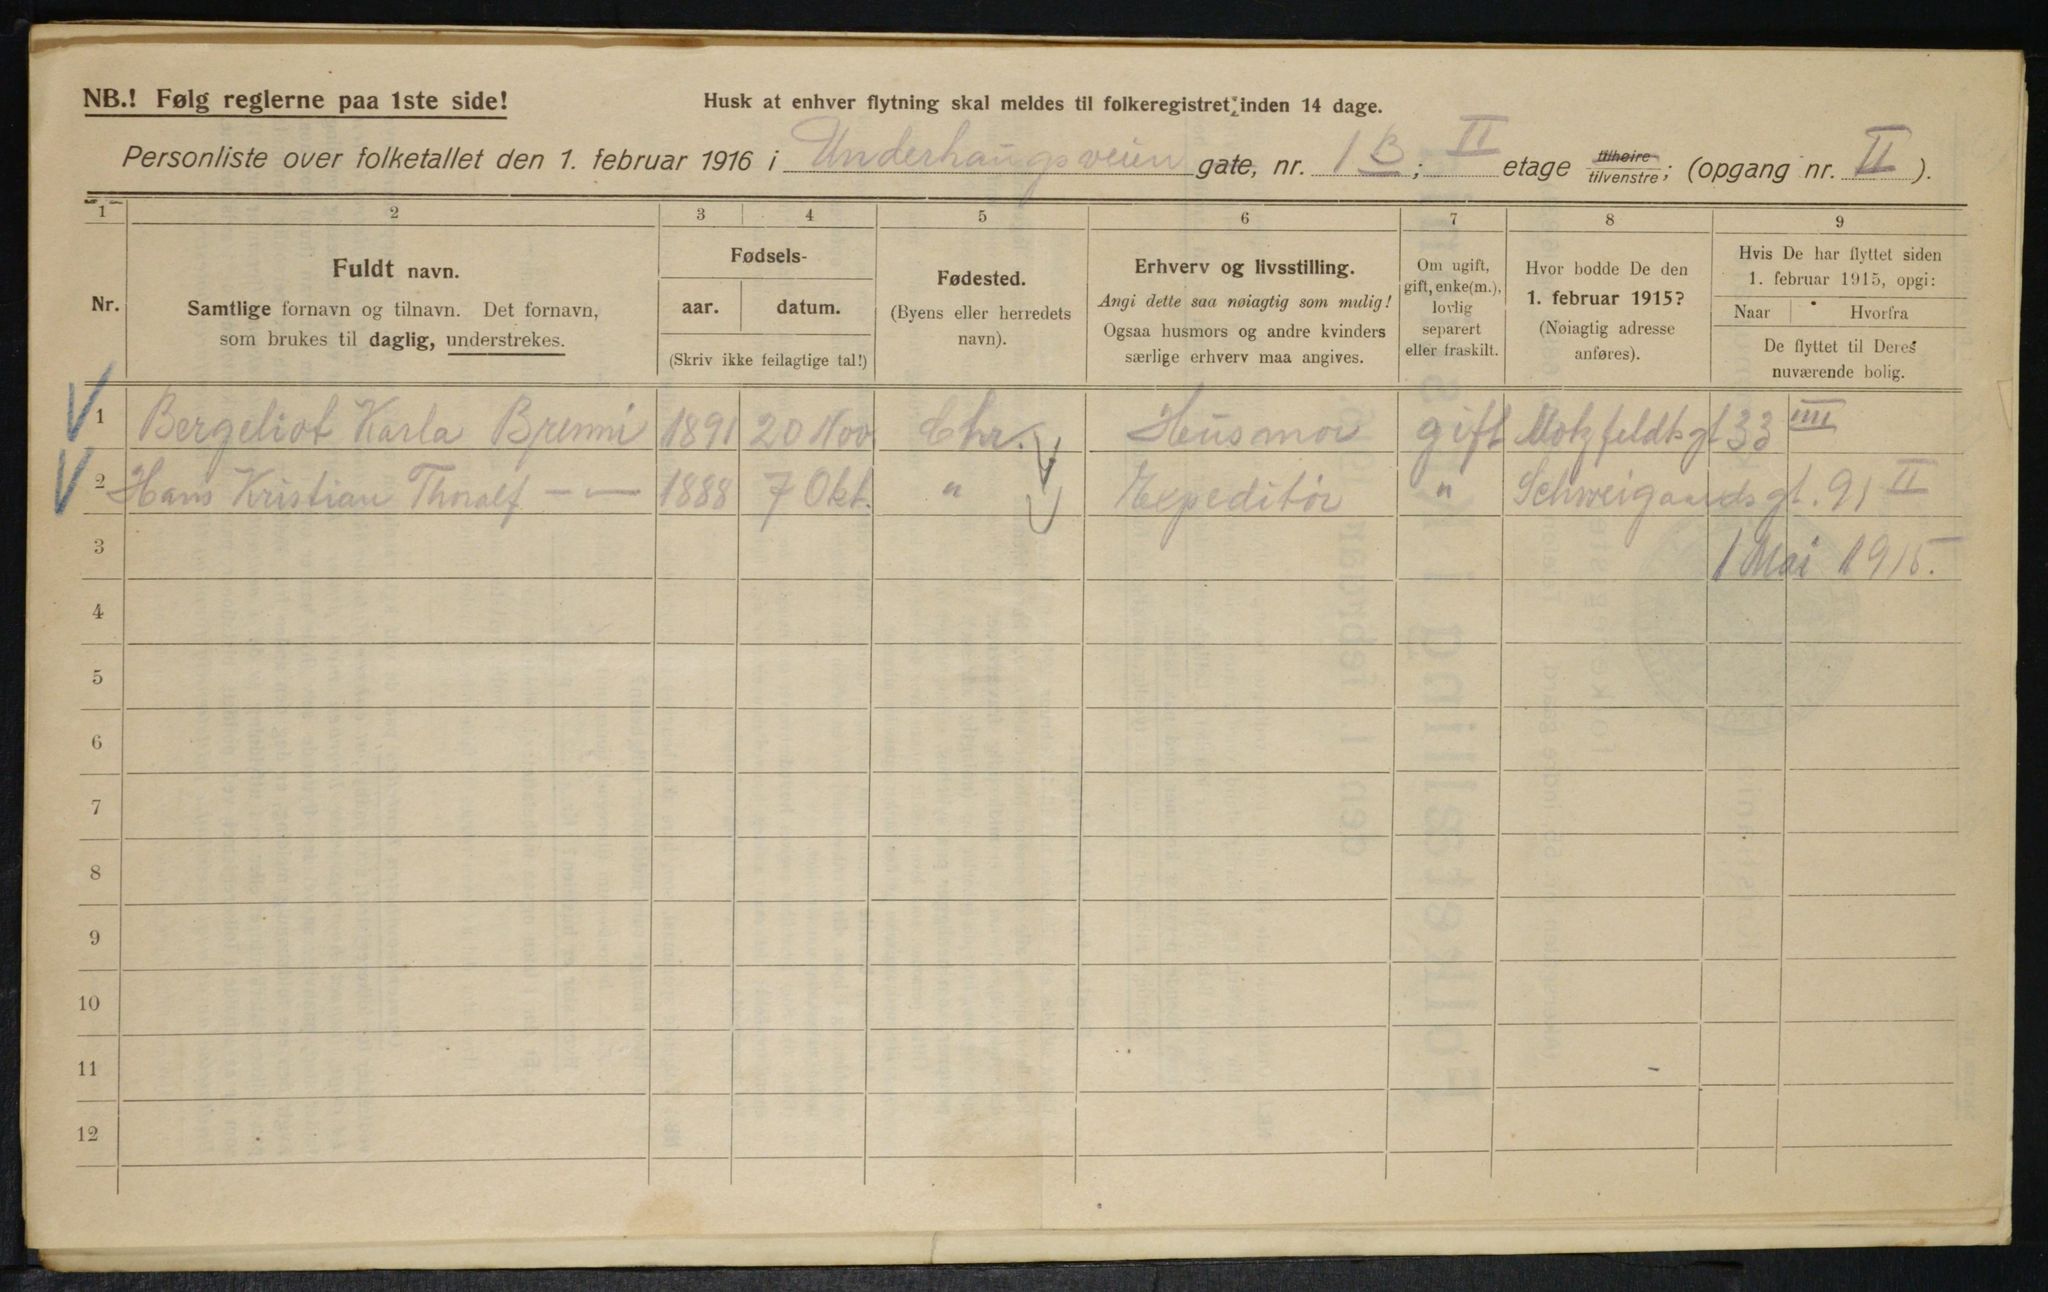 NB.! Følg reglerne paa 1ste side!
Husk at enhver flytning skal meldes til folkeregistret inden 14 dage.
Personliste over folketallet den 1. februar 1916 i Underhaugsveien gate, nr. 1 B; II etage tilhøire tilvenstre; (opgang nr. II).
1 2 3 4 5 6 7 8 9
Nr.
Fuldt navn.
Samtlige fornavn og tilnavn. Det fornavn,
som brukes til daglig, understrekes.
Fødsels-
aar. datum.
(Skriv ikke feilagtige tal!)
Fødested.
(Byens eller herredets
navn).
Erhverv og livsstilling.
Angi dette saa nøiagtig som mulig!
Ogsaa husmors og andre kvinders
særlige erhverv maa angives.
Om ugift,
gift, enke(m.),
lovlig
separert
eller fraskilt.
Hvor bodde De den
1. februar 1915?
(Nøiagtig adresse
anføres).
Hvis De har flyttet siden
1. februar 1915, opgi:
Naar Hvorfra
De flyttet til Deres
nuværende bolig.
1 Bergeliot Karla 1891 20 Nov Chr. Husmor gift Motzfeldtsgt 33 IIII
2 Hans Kristian Thoralf — — 1888 7 Okt. " Expeditør " Schweigaardsgt. 91 II
3 1 Mai 1915.
4
5
6
7
8
9
10
11
12